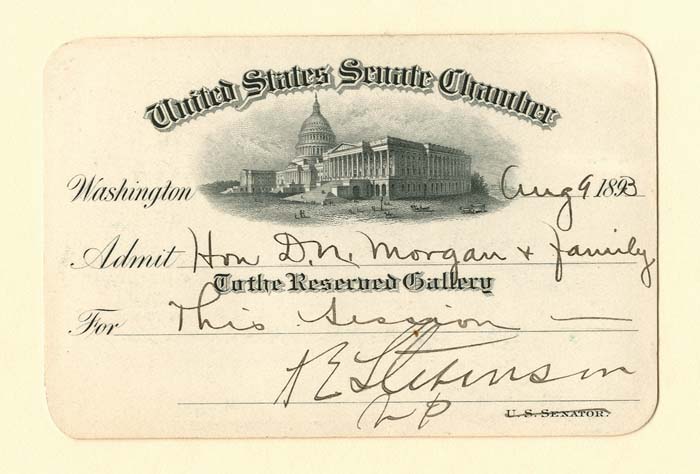 United States Senate Chamber
Washington Aug 9 1893
Admit Hon D.N. Morgan & family
To the Reserved Gallery
For This Session —
A E Stevenson
V P
U.S. SENATOR.